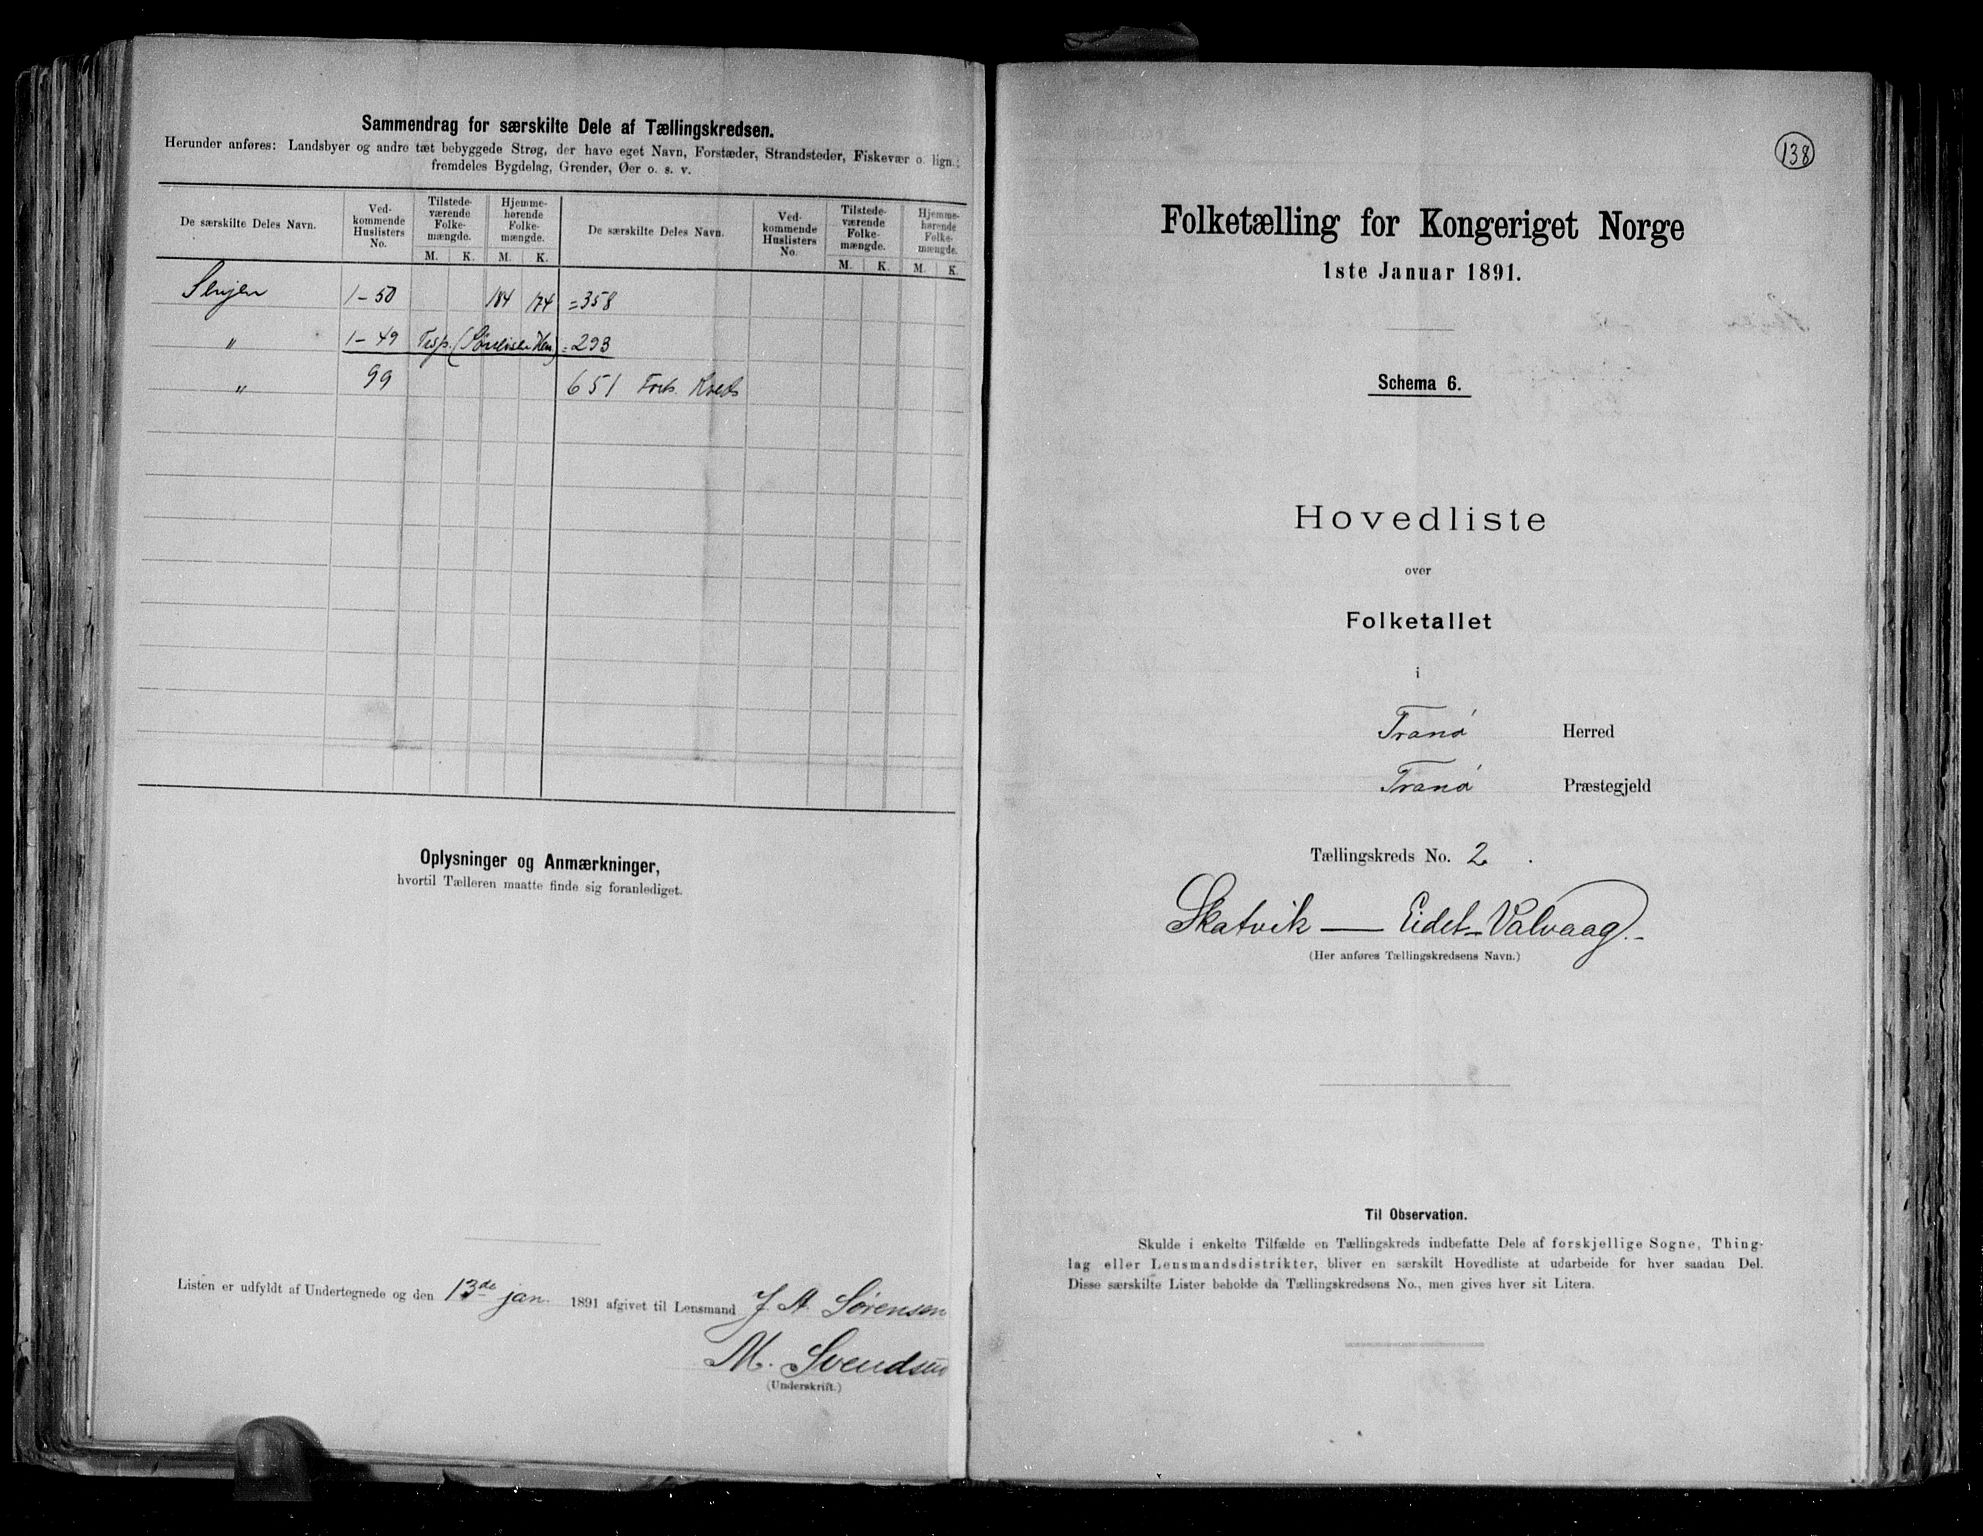 Sammendrag for særskilte Dele af Tællingskredsen.
Herunder anføres: Landsbyer og andre tæt bebyggede Strøg, der have eget Navn, Forstæder, Strandsteder, Fiskevær o. lign.;
fremdeles Bygdelag, Grender, Øer o. s. v.
De særskilte Deles Navn. Vedkommende Huslisters No. Tilstedeværende Folkemængde. Hjemmehørende Folkemængde. De særskilte Deles Navn. Vedkommende Huslisters No. Tilstedeværende Folkemængde. Hjemmehørende Folkemængde.
M. K. M. K. M. K. M. K.
Senjen 1-50 184 174 =358
" 1-49 =293
" 99 651
Oplysninger og Anmærkninger,
hvortil Tælleren maatte finde sig foranlediget.
Listen er udfyldt af Undertegnede og den 13de jan. 1891 afgivet til Lensmand J A Sørensen
M. Svendsen
(Underskrift.)
138
Folketælling for Kongeriget Norge
1ste Januar 1891.
Schema 6.
Hovedliste
over
Folketallet
i
Tranø Herred
Tranø Præstegjeld
Tællingskreds No. 2.
Skatvik — Eidet-Valvaag.-
(Her anføres Tællingskredsens Navn.)
Til Observation.
Skulde i enkelte Tilfælde en Tællingskreds indbefatte Dele af forskjellige Sogne, Thing-
lag eller Lensmandsdistrikter, bliver en særskilt Hovedliste at udarbeide for hver saadan Del.
Disse særskilte Lister beholde da Tællingskredsens No., men gives hver sit Litera.